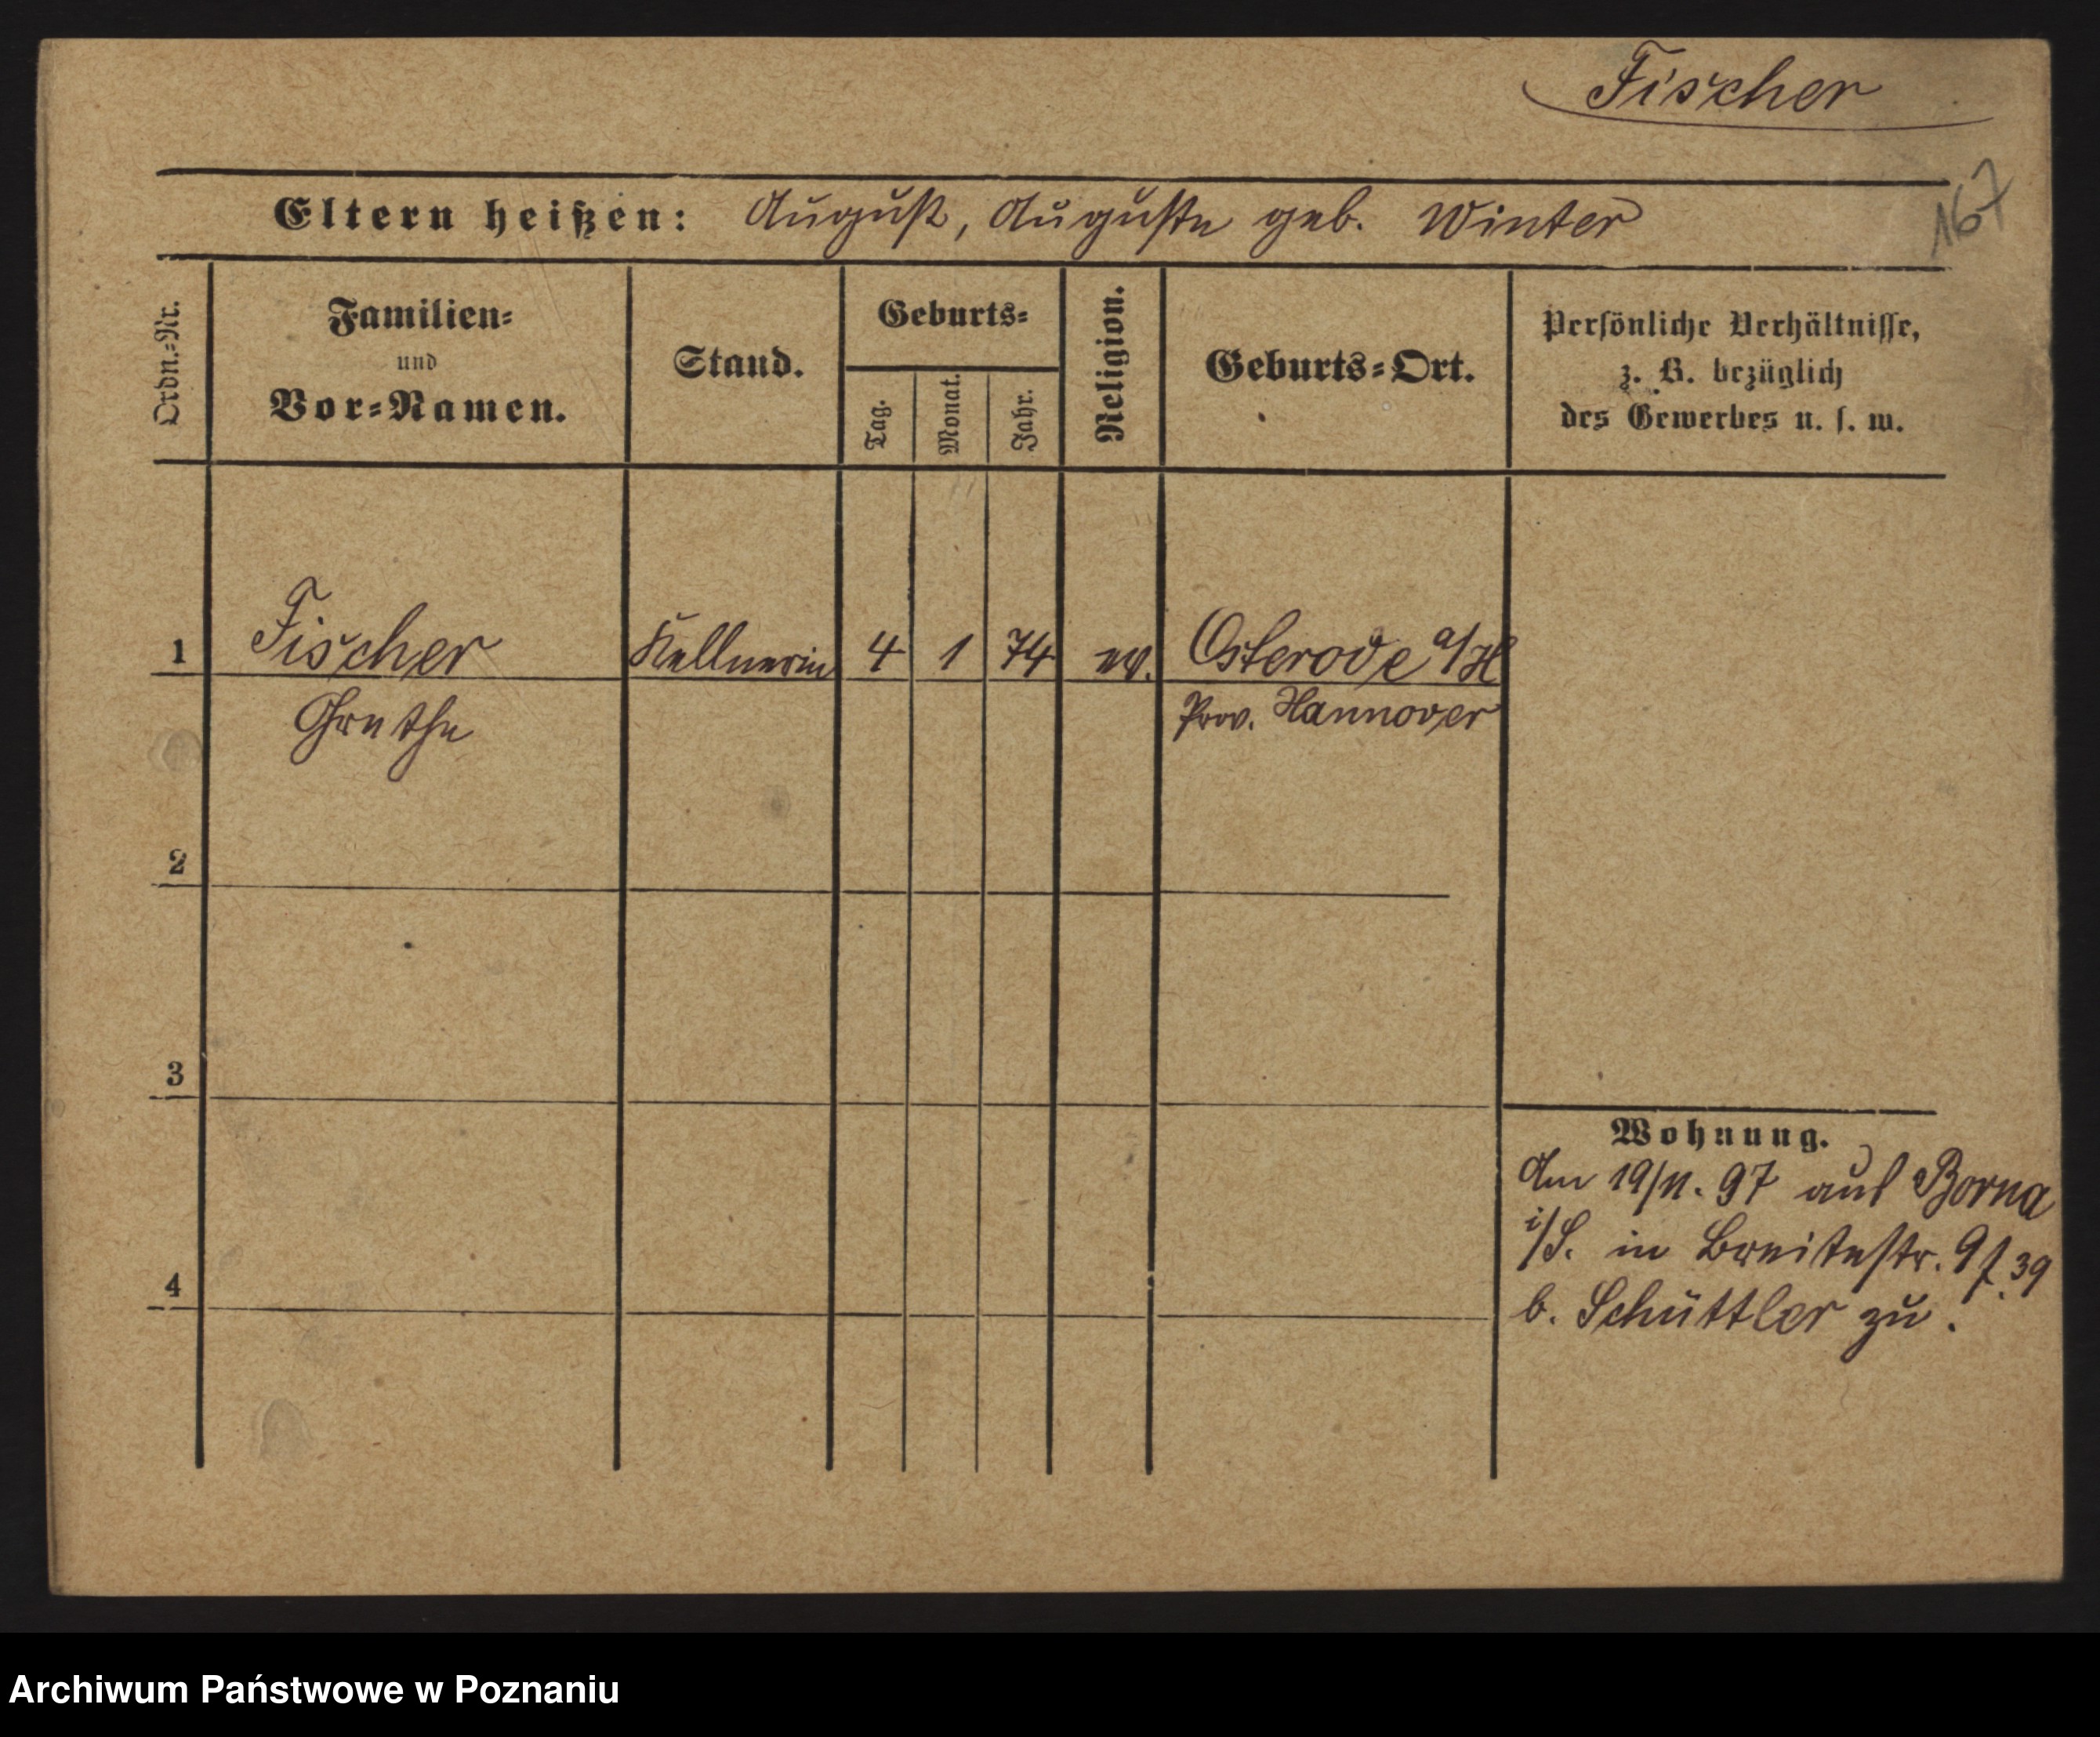 Fischer
167
Eltern heißen: August, Auguste geb. Winter
Ordn.-Nr.
Familien-
und
Vor-Namen.
Stand.
Geburts-
Tag.
Monat.
Jahr.
Religion.
Geburts-Ort.
Persönliche Verhältnisse,
z. B. bezüglich
des Gewerbes u. s. w.
1 Fischer Kellnerin 4 1 74 ev. Osterode a/H
Grethe Prov. Hannover
2
3
4
Wohnung.
Am 19/11. 97 aus Borna
i/S. in Breitestr. 9 f. 39
b. Schüttler zu.
Archiwum Państwowe w Poznaniu